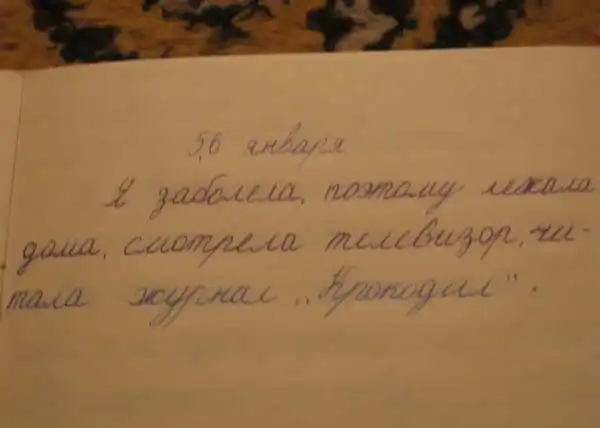 5,6 января
Я заболела, поэтому лежала
дома, смотрела телевизор, чи-
тала журнал „Крокодил".